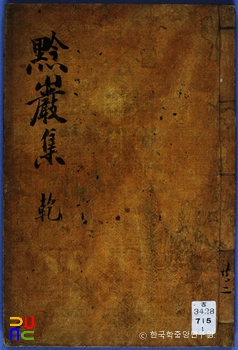 黔巖集 乾
共二
古
3428
715
1
© 한국학중앙연구원